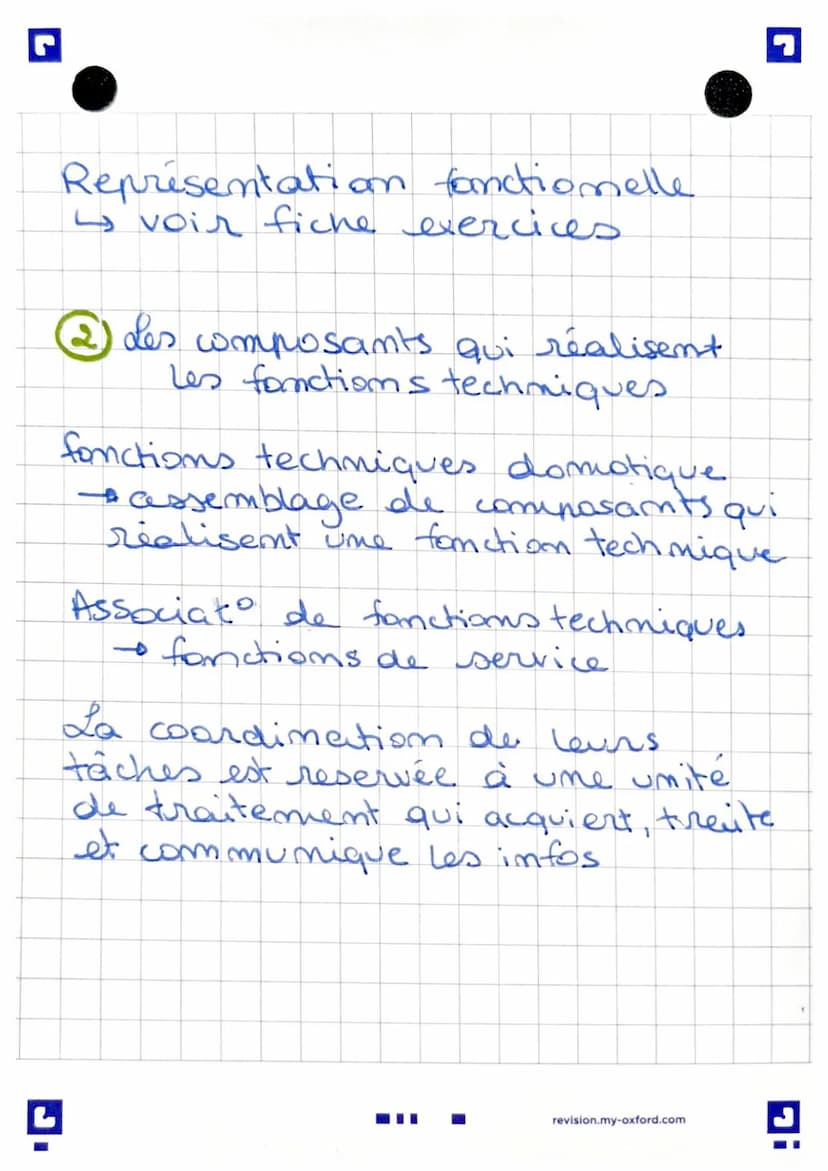 Représentation fonctionnelle
↳ voir fiche exercices
② Les composants qui réalisent
les fonctions techniques
fonctions techniques domotique
→ assemblage de composants qui
réalisent une fonction technique
Associat° de fonctions techniques
→ fonctions de service
La coordination de leurs
tâches est reservée à une unité
de traitement qui acquiert, traite
et communique les infos
revision.my-oxford.com